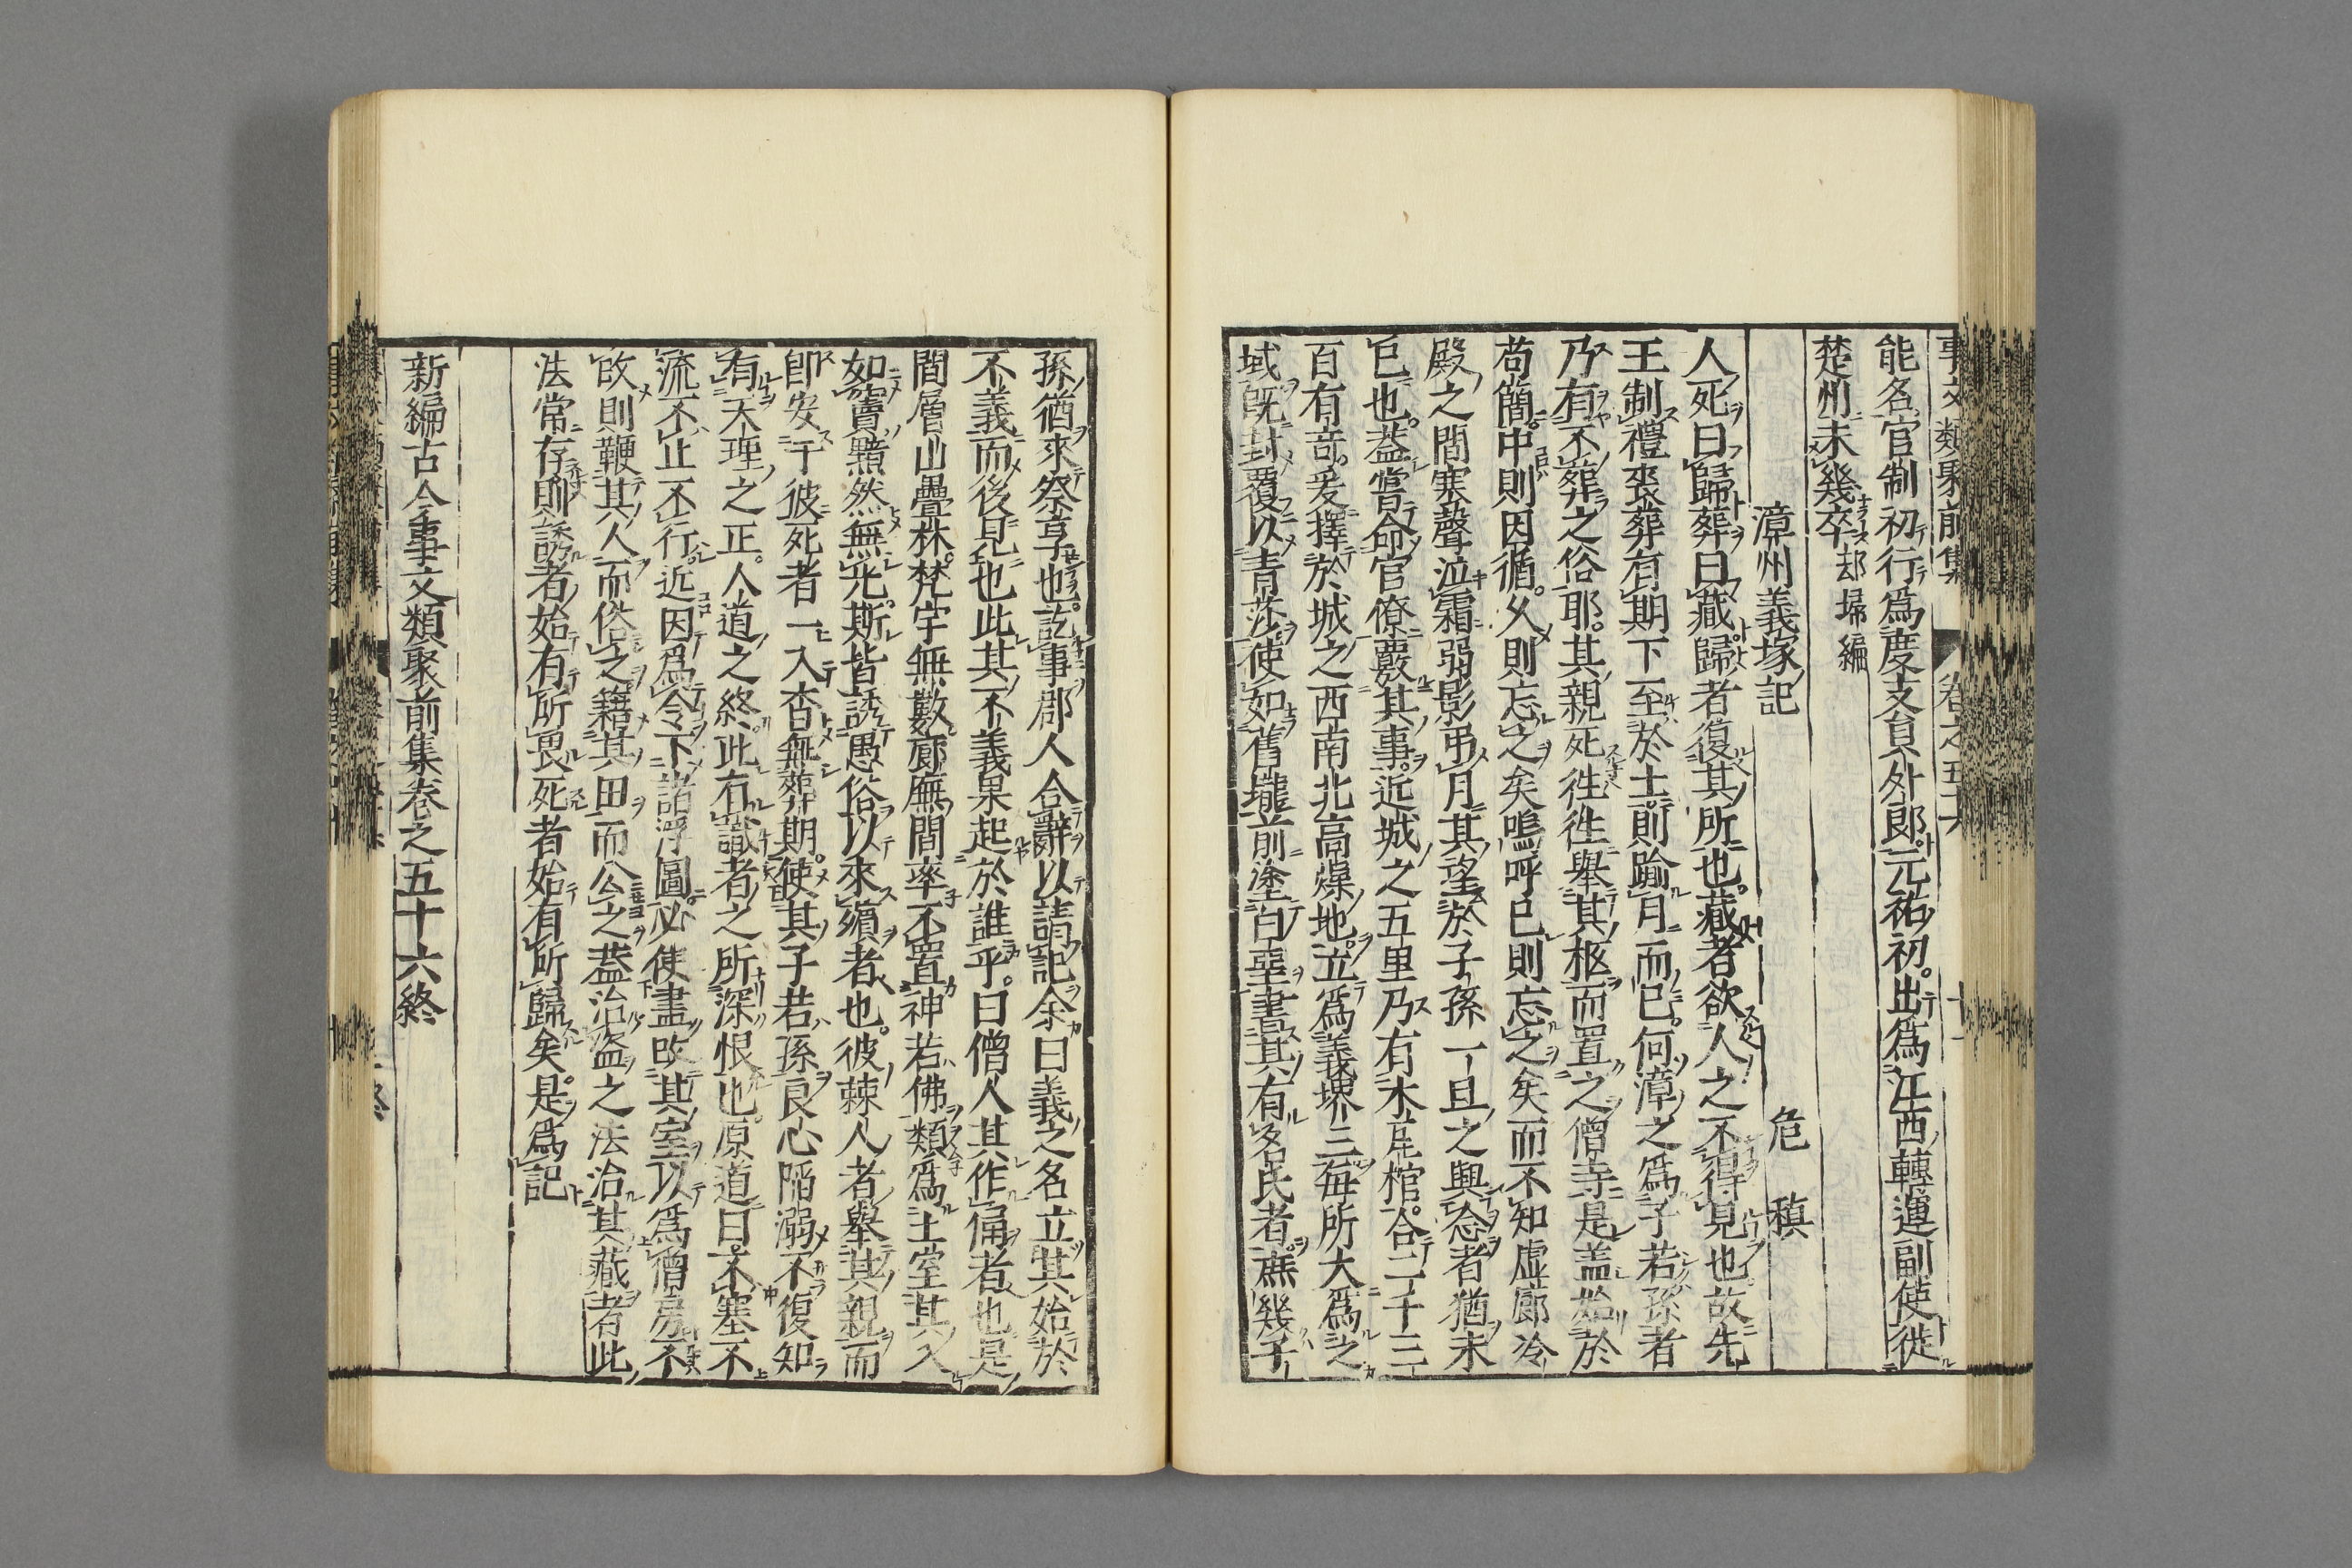 事文類聚前集 卷之五十六
能名官制初行爲度支員外郎元祐初出爲江西轉運副使徙
楚州未幾卒 却掃編
漳州義塚記 危稹
人死曰歸葬曰藏歸者復其所也藏者欲人之不得見也故先
王制禮喪葬有期下至於士則踰月而已何漳之爲子若孫者
乃有不葬之俗耶其親死徃徃舉其柩而置之僧寺是盖始於
苟簡中則因循久則忘之矣嗚呼已則忘之矣而不知虛廊冷
殿之間寒聲泣霜弱影弔月其望於子孫一旦之興念者猶未
已也葢嘗命官僚覈其事近城之五里乃有木瓦棺合二千三
百有竒爰擇於城之西南北高燥地立爲義塚三每所大爲之
域旣封覆以青莎使如舊壠前塗白堊書其有名民者庶幾子
孫猶來祭享也訖事郡人合辭以請記余曰義之名立其始於
不義而後見也此其不義果起於誰乎曰僧人其作俑者也是
間層山疊林梵宇無數廊廡間率不置神若佛類爲土室其入
如竇黯然無光斯皆誘愚俗以來殯者也彼棘人者舉其親而
卽安于彼死者一入杳無葬期使其子若孫良心陷溺不復知
有天理之正人道之終此有識者之所深恨也原道曰不塞不
流不止不行近因爲令下諸浮圖必使盡改其室以爲僧房不
改則鞭其人而俗之籍其田而公之葢治盜之法治其藏者此
法常存則誘者始有所畏死者始有所歸矣是爲記
新編古今事文類聚前集卷之五十六終